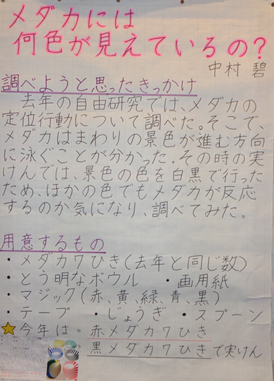 メダカには
何色が見えているの?
中村 碧
調べようと思ったきっかけ
去年の自由研究では、メダカの
定位行動について調べた。そこで、
メダカはまわりの景色が進む方向
に泳ぐことが分かった。その時の実
けんでは、景色の色を白黒で行った
ため、ほかの色でもメダカが反応
するのか気になり、調べてみた。
用意するもの
・メダカ7ひき(去年と同じ数)
・とう明なボウル ・画用紙
・マジック(赤、黄、緑、青、黒)
・テープ ・じょうぎ ・スプーン
☆今年は・赤メダカ7ひき
黒メダカ7ひきで実けん